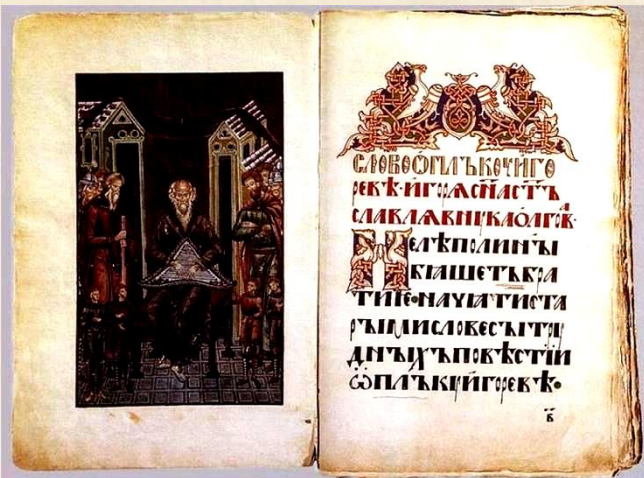 СЛОВО Ѡ ПЛЪКОУ ИГО
РЕВѢ·ИГОРѦ СН҃А СТ҃Ъ
СЛАВЛѦ ВНУКА ОЛГОВА
НЕ ЛѢПО ЛИ НЪІ
БѦШЕТЪ БРА
ТИЕ·НАЧѦТИ СТА
РЪІМИ СЛОВЕСЪІ ТРУ
ДНЪІХЪ ПОВѢСТИИ
Ѡ ПЛЪКУ ИГОРЕВѢ·